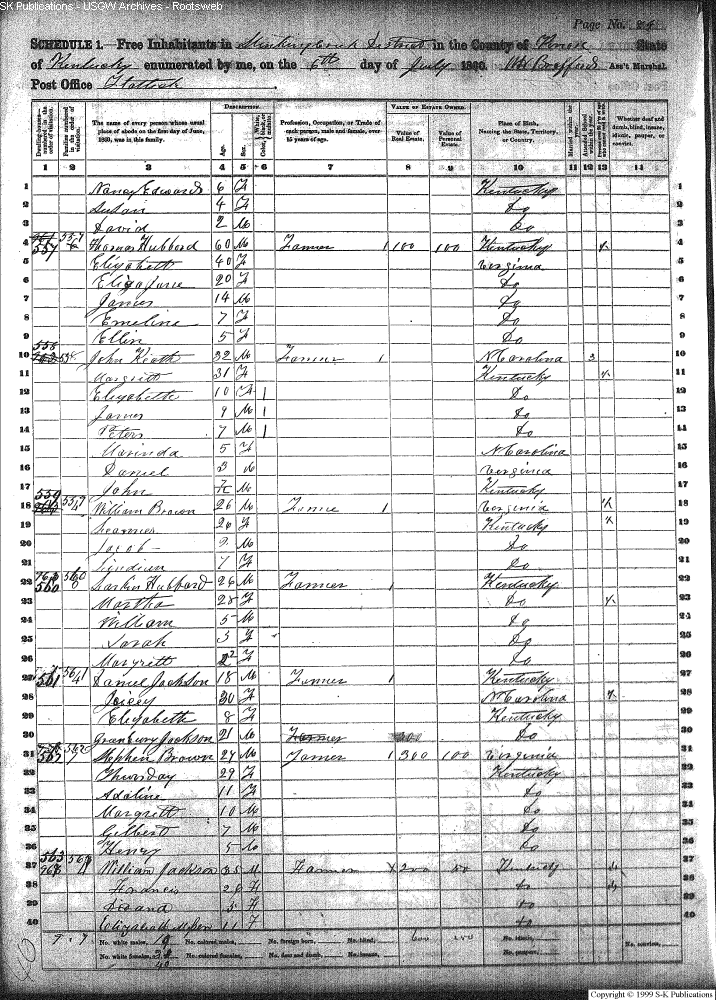 SK Publications - USGW Archives - Rootsweb
Page No.
SCHEDULE 1.—Free Inhabitants in District in the County of Knox State
of Kentucky enumerated by me, on the 6th day of July 1860. Ass't Marshal.
Post Office
Dwelling-houses numbered in the order of visitation.
Families numbered in the order of visitation.
The name of every person whose usual place of abode on the first day of June, 1860, was in this family.
DESCRIPTION.
Age.
Sex.
Color, White, black, or mulatto.
Profession, Occupation, or Trade of each person, male and female, over 15 years of age.
VALUE OF ESTATE OWNED.
Value of Real Estate.
Value of Personal Estate.
Place of Birth, Naming the State, Territory, or Country.
Married within the year.
Attended School within the year.
Whether deaf and dumb, blind, insane, idiotic, pauper, or convict.
1 2 3 4 5 6 7 8 9 10 11 12 13 14
1 Nancy Edwards 6 F Kentucky 1
2 Susan 4 F Do 2
3 David 2 M Do 3
4 557 Thomas Hubbard 60 M Farmer 100 100 Kentucky 4
5 Elizabeth 40 F Virginia 5
6 Eliza Jane 20 F Do 6
7 James 14 M Do 7
8 Emeline 7 F Do 8
9 Ellin 5 F Do 9
10 558 John Keath 32 M Farmer N Carolina 10
11 Margritt 31 F Kentucky 11
12 Elizabeth 10 F 1 Do 12
13 James 9 M 1 Do 13
14 Peters 7 M 1 Do 14
15 Marinda 5 F N Carolina 15
16 Daniel 3 M Virginia 16
17 John M Kentucky 17
18 559 William Brown 26 M Farmer Virginia 18
19 26 F Kentucky 19
20 Jacob M Do 20
21 7 F Do 21
22 560 Larkin Hubbard 26 M Farmer Kentucky 22
23 Martha 28 F Do 23
24 William 5 M Do 24
25 Sarah 3 F Do 25
26 Margritt F Do 26
27 561 Daniel Jackson 18 M Farmer Kentucky 27
28 Joicey 30 F N Carolina 28
29 Elizabeth 8 F Kentucky 29
30 Granbury Jackson 21 M Farmer 200 Do 30
31 Stephen Brown 27 M Farmer 300 100 Virginia 31
32 Thursday 29 F Kentucky 32
33 Adaline 11 F Do 33
34 Margritt 10 M Do 34
35 Gilbert 7 M Do 35
36 Henry 5 M Do 36
37 563 William Jackson 35 M Farmer 200 50 Kentucky 37
38 Francis 28 F Do 38
39 F Do 39
40 Elizabeth 11 F Do 40
No. white males, No. colored males, No. foreign born, No. blind, 600 No. idiotic, No. convicts,
No. white females, No. colored females, No. deaf and dumb, No. insane, No. paupers,
40
Copyright © 1999 S-K Publications